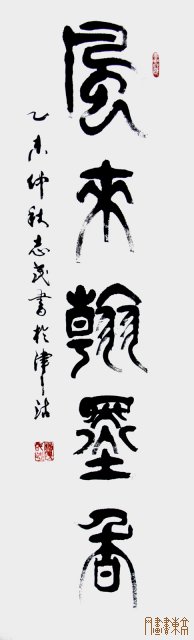 風來翰墨香
乙未仲秋志茂書於津沽